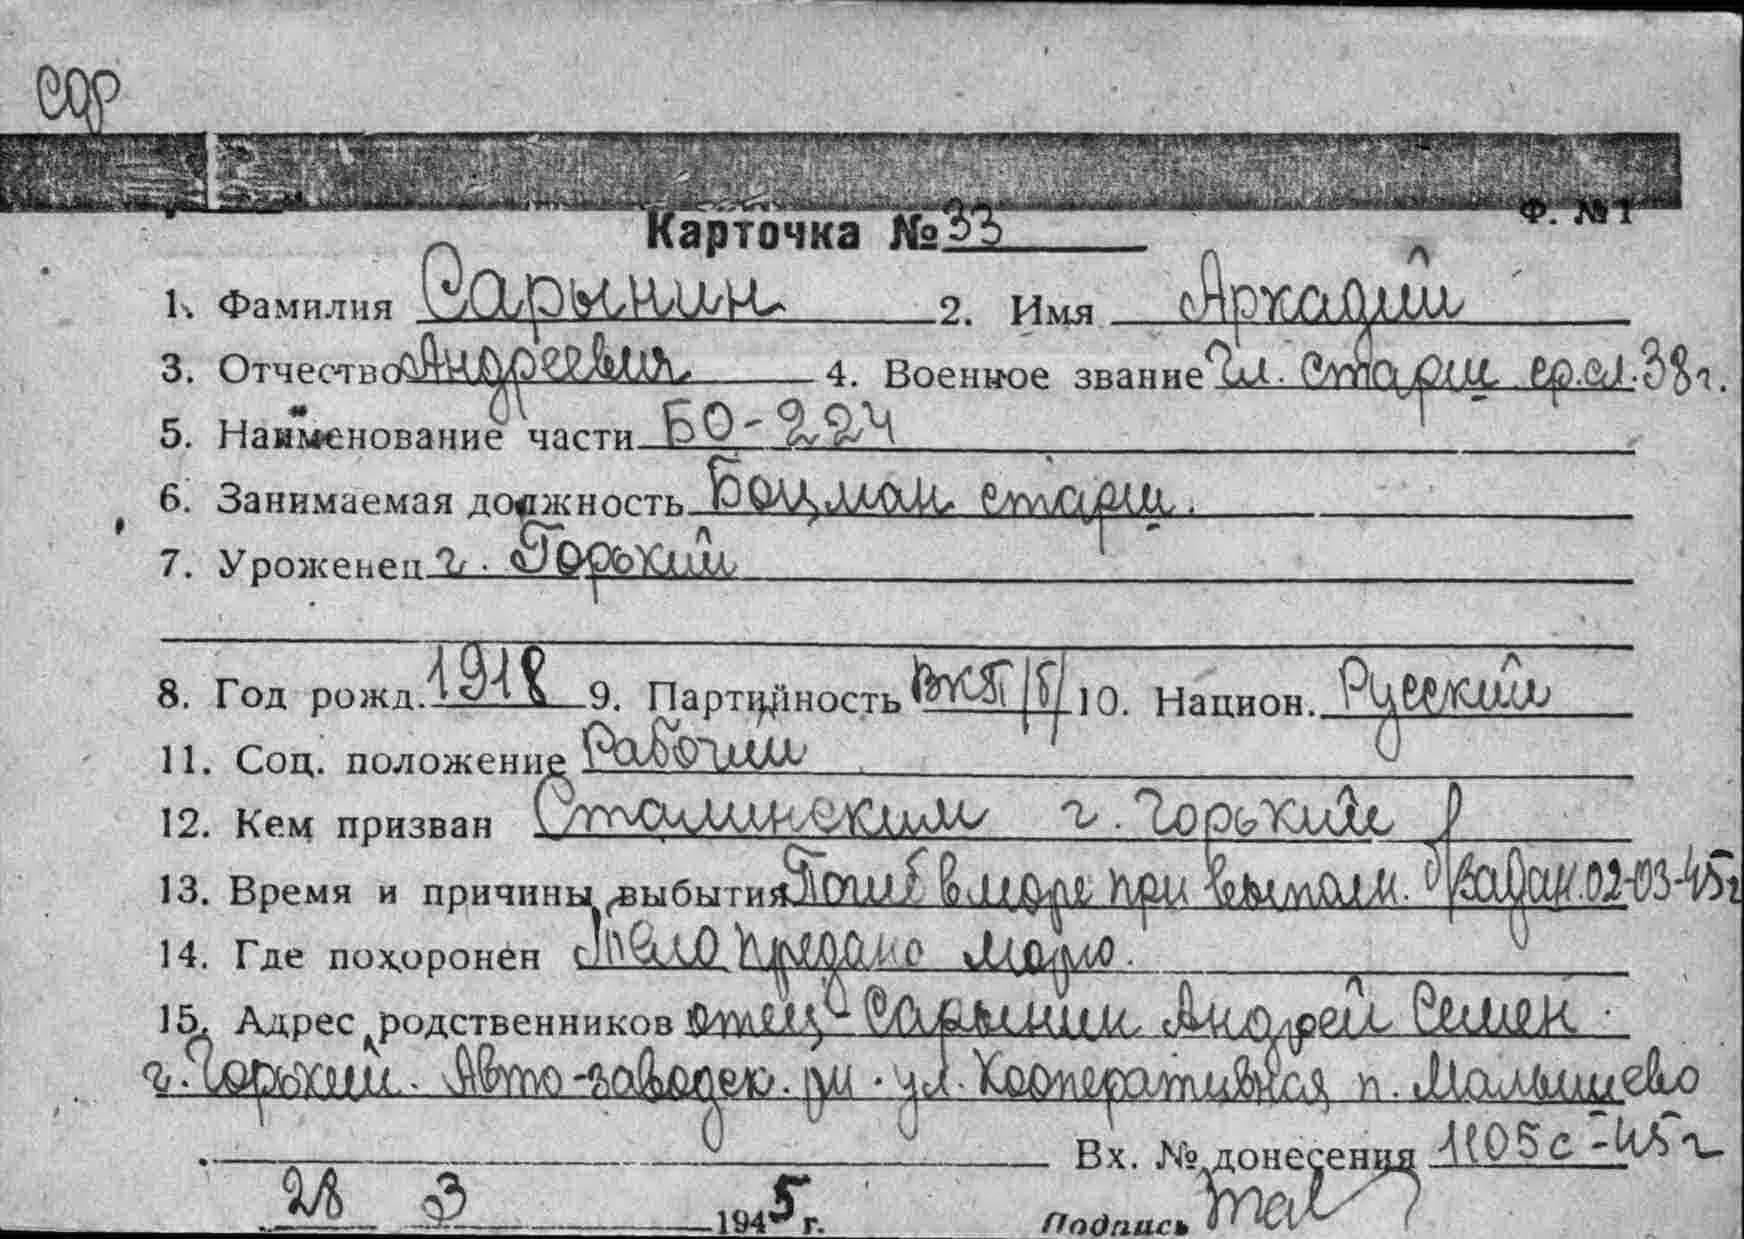 Ф. №1
Карточка № 33
1. Фамилия Сарынин 2. Имя Аркадий
3. Отчество Андреевич 4. Военное звание Гл. старш ср.сл. 38 г.
5. Наименование части БО-224
6. Занимаемая должность Боцман старш.
7. Уроженец г. Горький
8. Год рожд. 1918 9. Партийность ВКП/б/ 10. Национ. Русский
11. Соц. положение Рабочий
12. Кем призван Сталинским г. Горький
13. Время и причины выбытия Погиб в море при выполн. б/задан. 02-03-45г
14. Где похоронен Тело предано морю.
15. Адрес родственников отец - Сарынин Андрей Семен.
г. Горький. Авто-заводск. рн. ул. Кооперативная п. Малышево
Вх. № донесения 1105с-45г
28 3 1945 г. Подпись